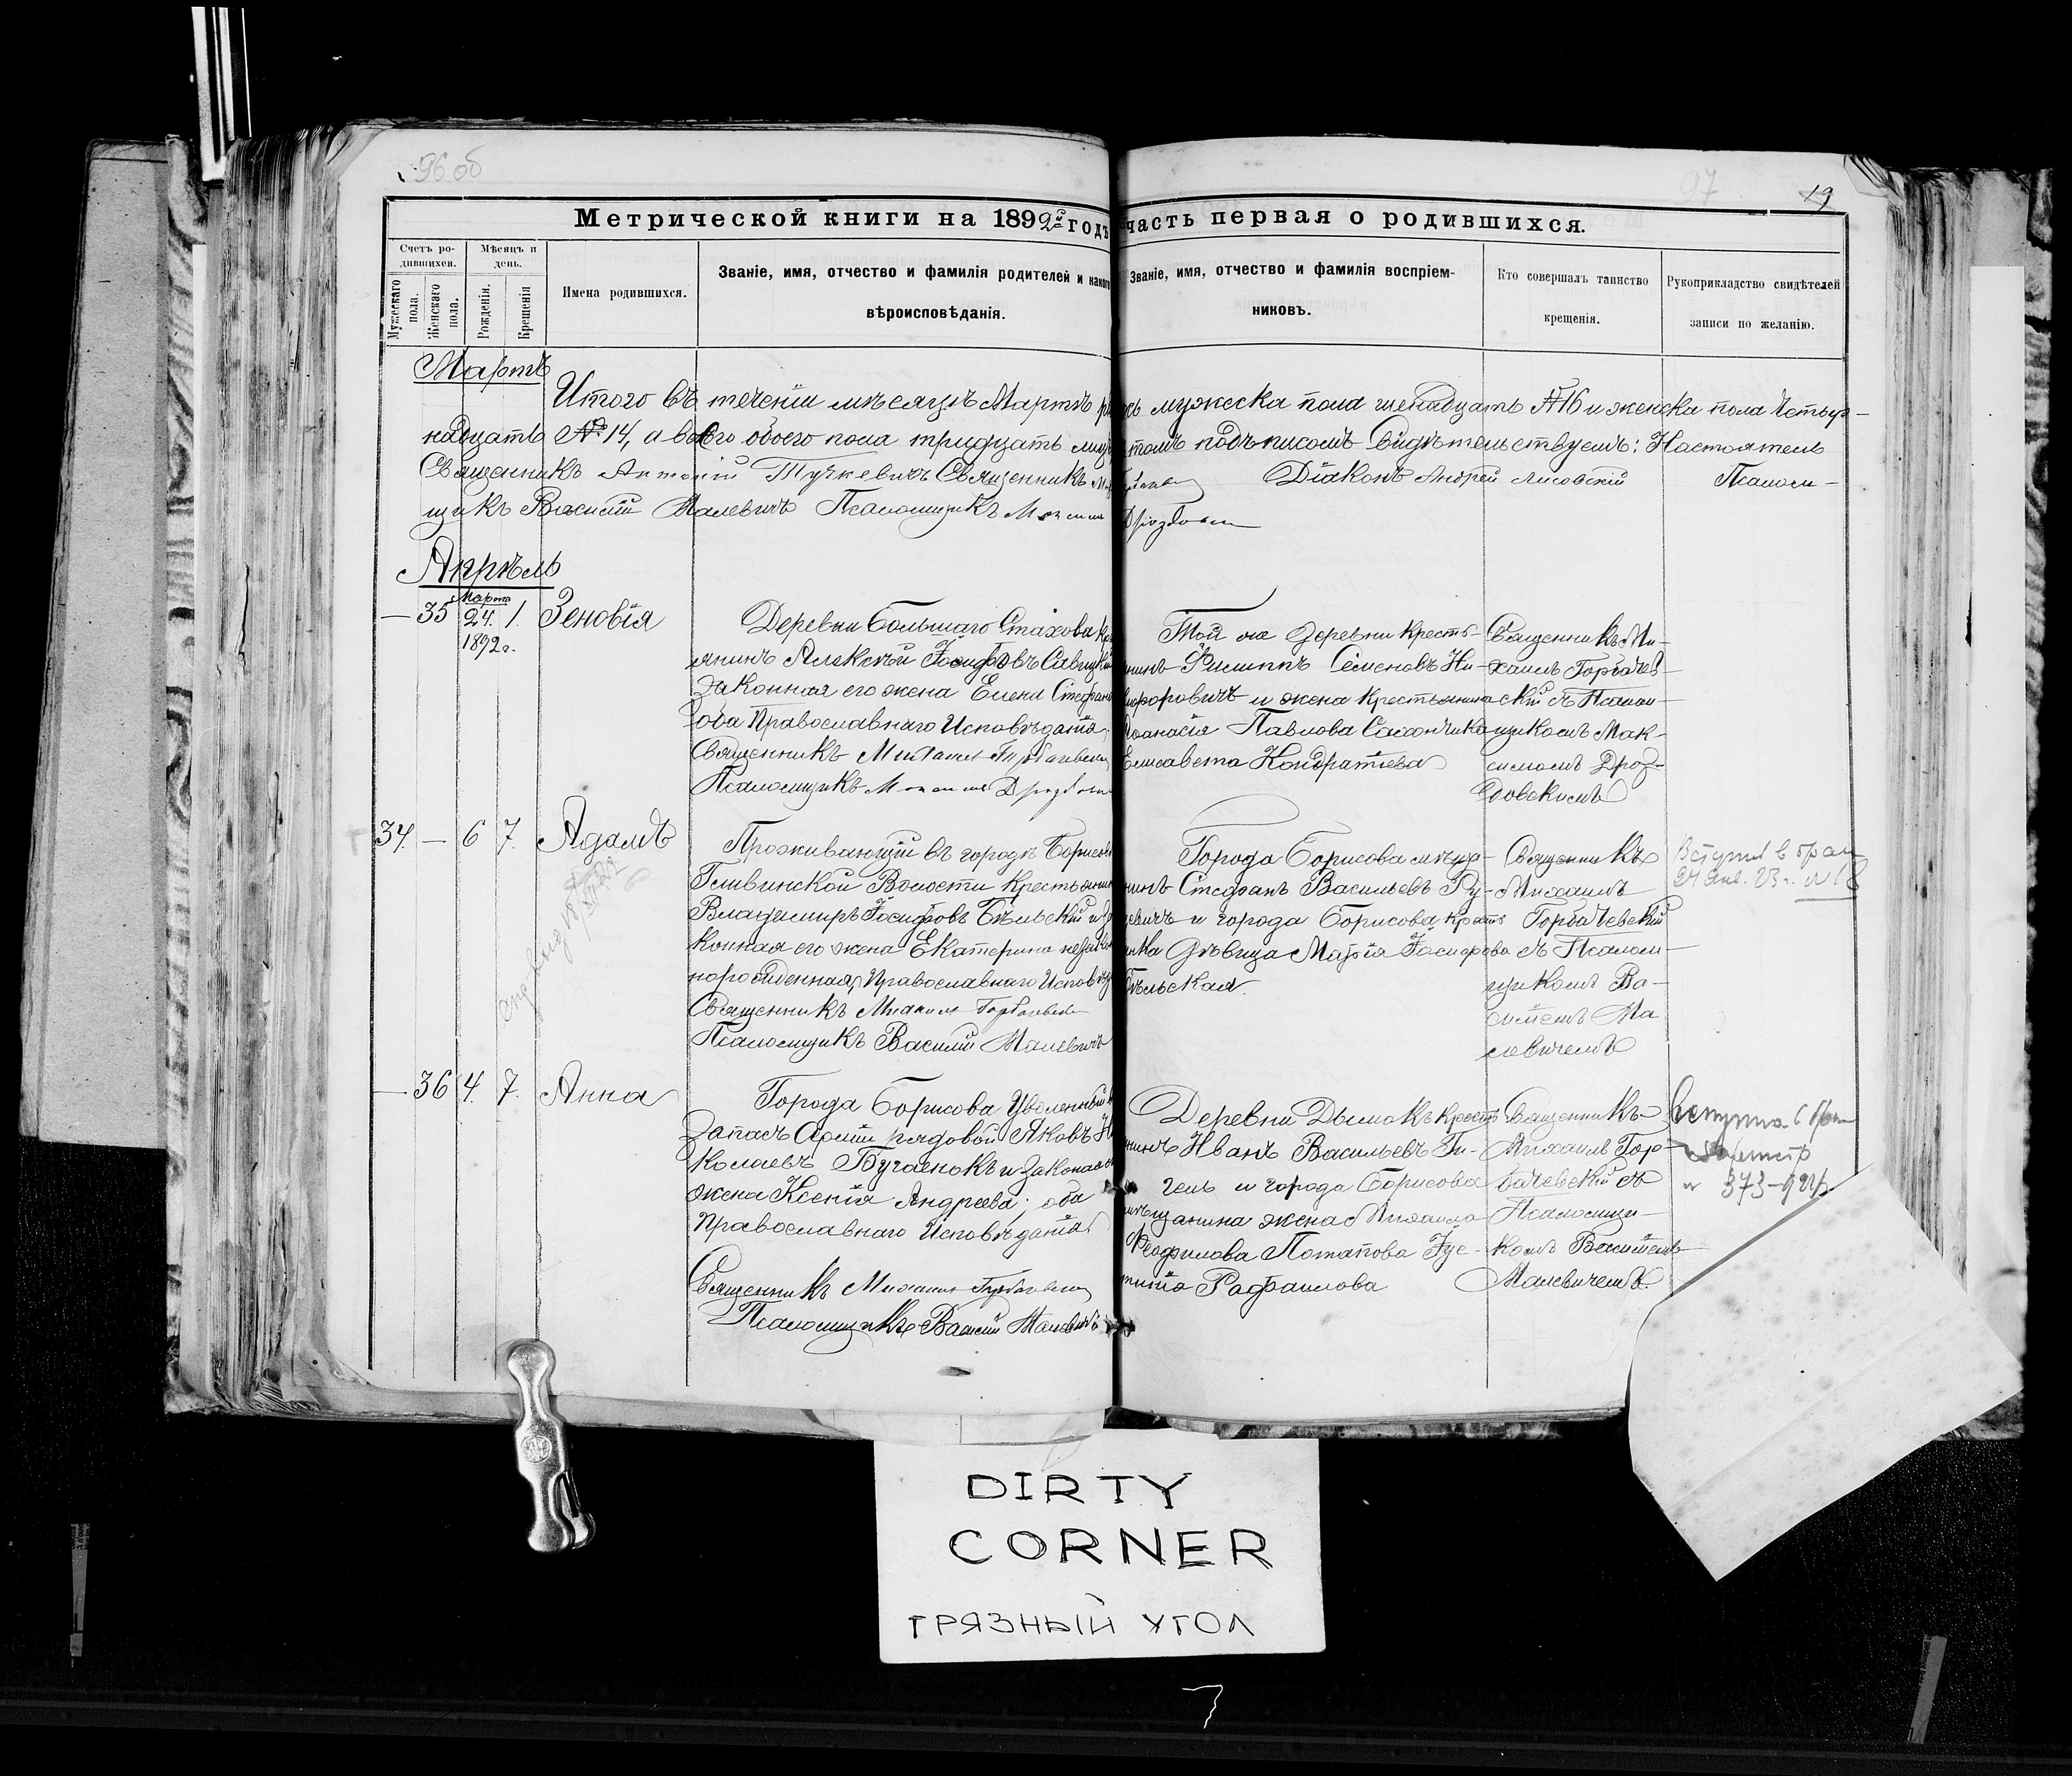 96 об
97
19
Метрической книги на 1892й годъ
часть первая о родившихся.
Счетъ родившихся.
Мужескаго пола.
Женскаго пола.
Мѣсяцъ и день.
Рожденія.
Крещенія
Имена родившихся.
Званіе, имя, отчество и фамилія родителей и какого
вѣроисповѣданія.
Званіе, имя, отчество и фамилія воспріем-
никовъ.
Кто совершалъ таинство
крещенія.
Рукоприкладство свидѣтелей
записи по желанію.
Мартъ
Итого въ теченіи мѣсяцѣ Мартѣ мужеска пола шестнадцать №16 и женска пола четыр-
надцать № 14, а всего обоего пола тридцать подъписомъ свидѣтельствуемъ: Настоятель
Священникъ Антоній Тучкевичъ Священникъ Діаконъ Андрей Лисовскій Псалом-
щикъ Василій Малевичъ Псаломщикъ
Апрѣль
— 35 Марта 24. 1. Зеновія
1892 г.
Деревни Большаго Стахова
янинъ Алексѣй Іосифовъ Савицкій
законная его жена Елена Стефан
оба Православнаго Исповѣданія.
Священникъ Михаилъ Горбачевскій
Псаломщикъ
Той же деревни кресть-
нинъ Филиппъ Семеновъ Ни-
кифоровичъ и жена крестьянина
Аѳанасія Павлова
Елисавета Кондратіева
Священникъ Ми-
хаилъ Горбачев-
скій съ Псалом-
щикомъ Мак-
симомъ Дроз-
довскимъ
34. — 6 7. Адамъ
Проживающій въ городѣ Борисовѣ
Гливинской Волости крестьянинъ
Владиміръ Іосифовъ Бѣльскій и за
конная его жена Екатерина незакон
норожденная, Православнаго Исповѣд
Священникъ Михаилъ Горбачевскій
Псаломщикъ Василій Малевичъ
Города Борисова мѣща-
нинъ Стефанъ Васильевъ Ру-
цевичъ и города Борисова кресть
янка дѣвица Марія Іосифова
Бѣльская.
Священникъ
Михаилъ
Горбачевскій
съ Псалом-
щикомъ Ва-
силіемъ Ма
левичемъ
Вступил в брак
24 янв. 23 г. № 18
— 36 4. 7. Анна
Города Борисова Уволенный въ
Запасъ Арміи рядовой Яковъ Ни
колаевъ Бучаенокъ и законная
жена Ксенія Андреева; оба
Православнаго Исповѣданія
Священникъ Михаилъ Горбачевскій
Псаломщикъ Василій Малевичъ
Деревни Дымокъ кресть
нинъ Иванъ Васильевъ Ги-
чель и города Борисова
мѣщанина жена Михаила
Ѳеофилова Потапова Іус-
тинія Рафаилова
Священникъ
Михаилъ Гор-
бачевскій съ
Псаломщи-
комъ Василіемъ
Малевичемъ.
№ 373
DIRTY
CORNER
ГРЯЗНЫЙ УГОЛ
7